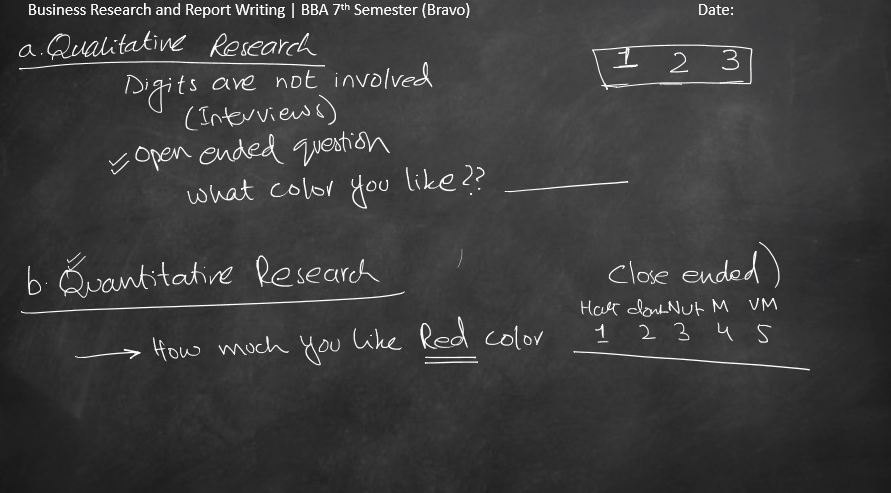 Business Research and Report Writing | BBA 7th Semester (Bravo) Date:
a. Qualitative Research
1 2 3
Digits are not involved
(Interviews)
open ended question
what color you like ??
b. Quantitative Research
Close ended)
Nut M VM
How much you like Red color
1 2 3 4 5